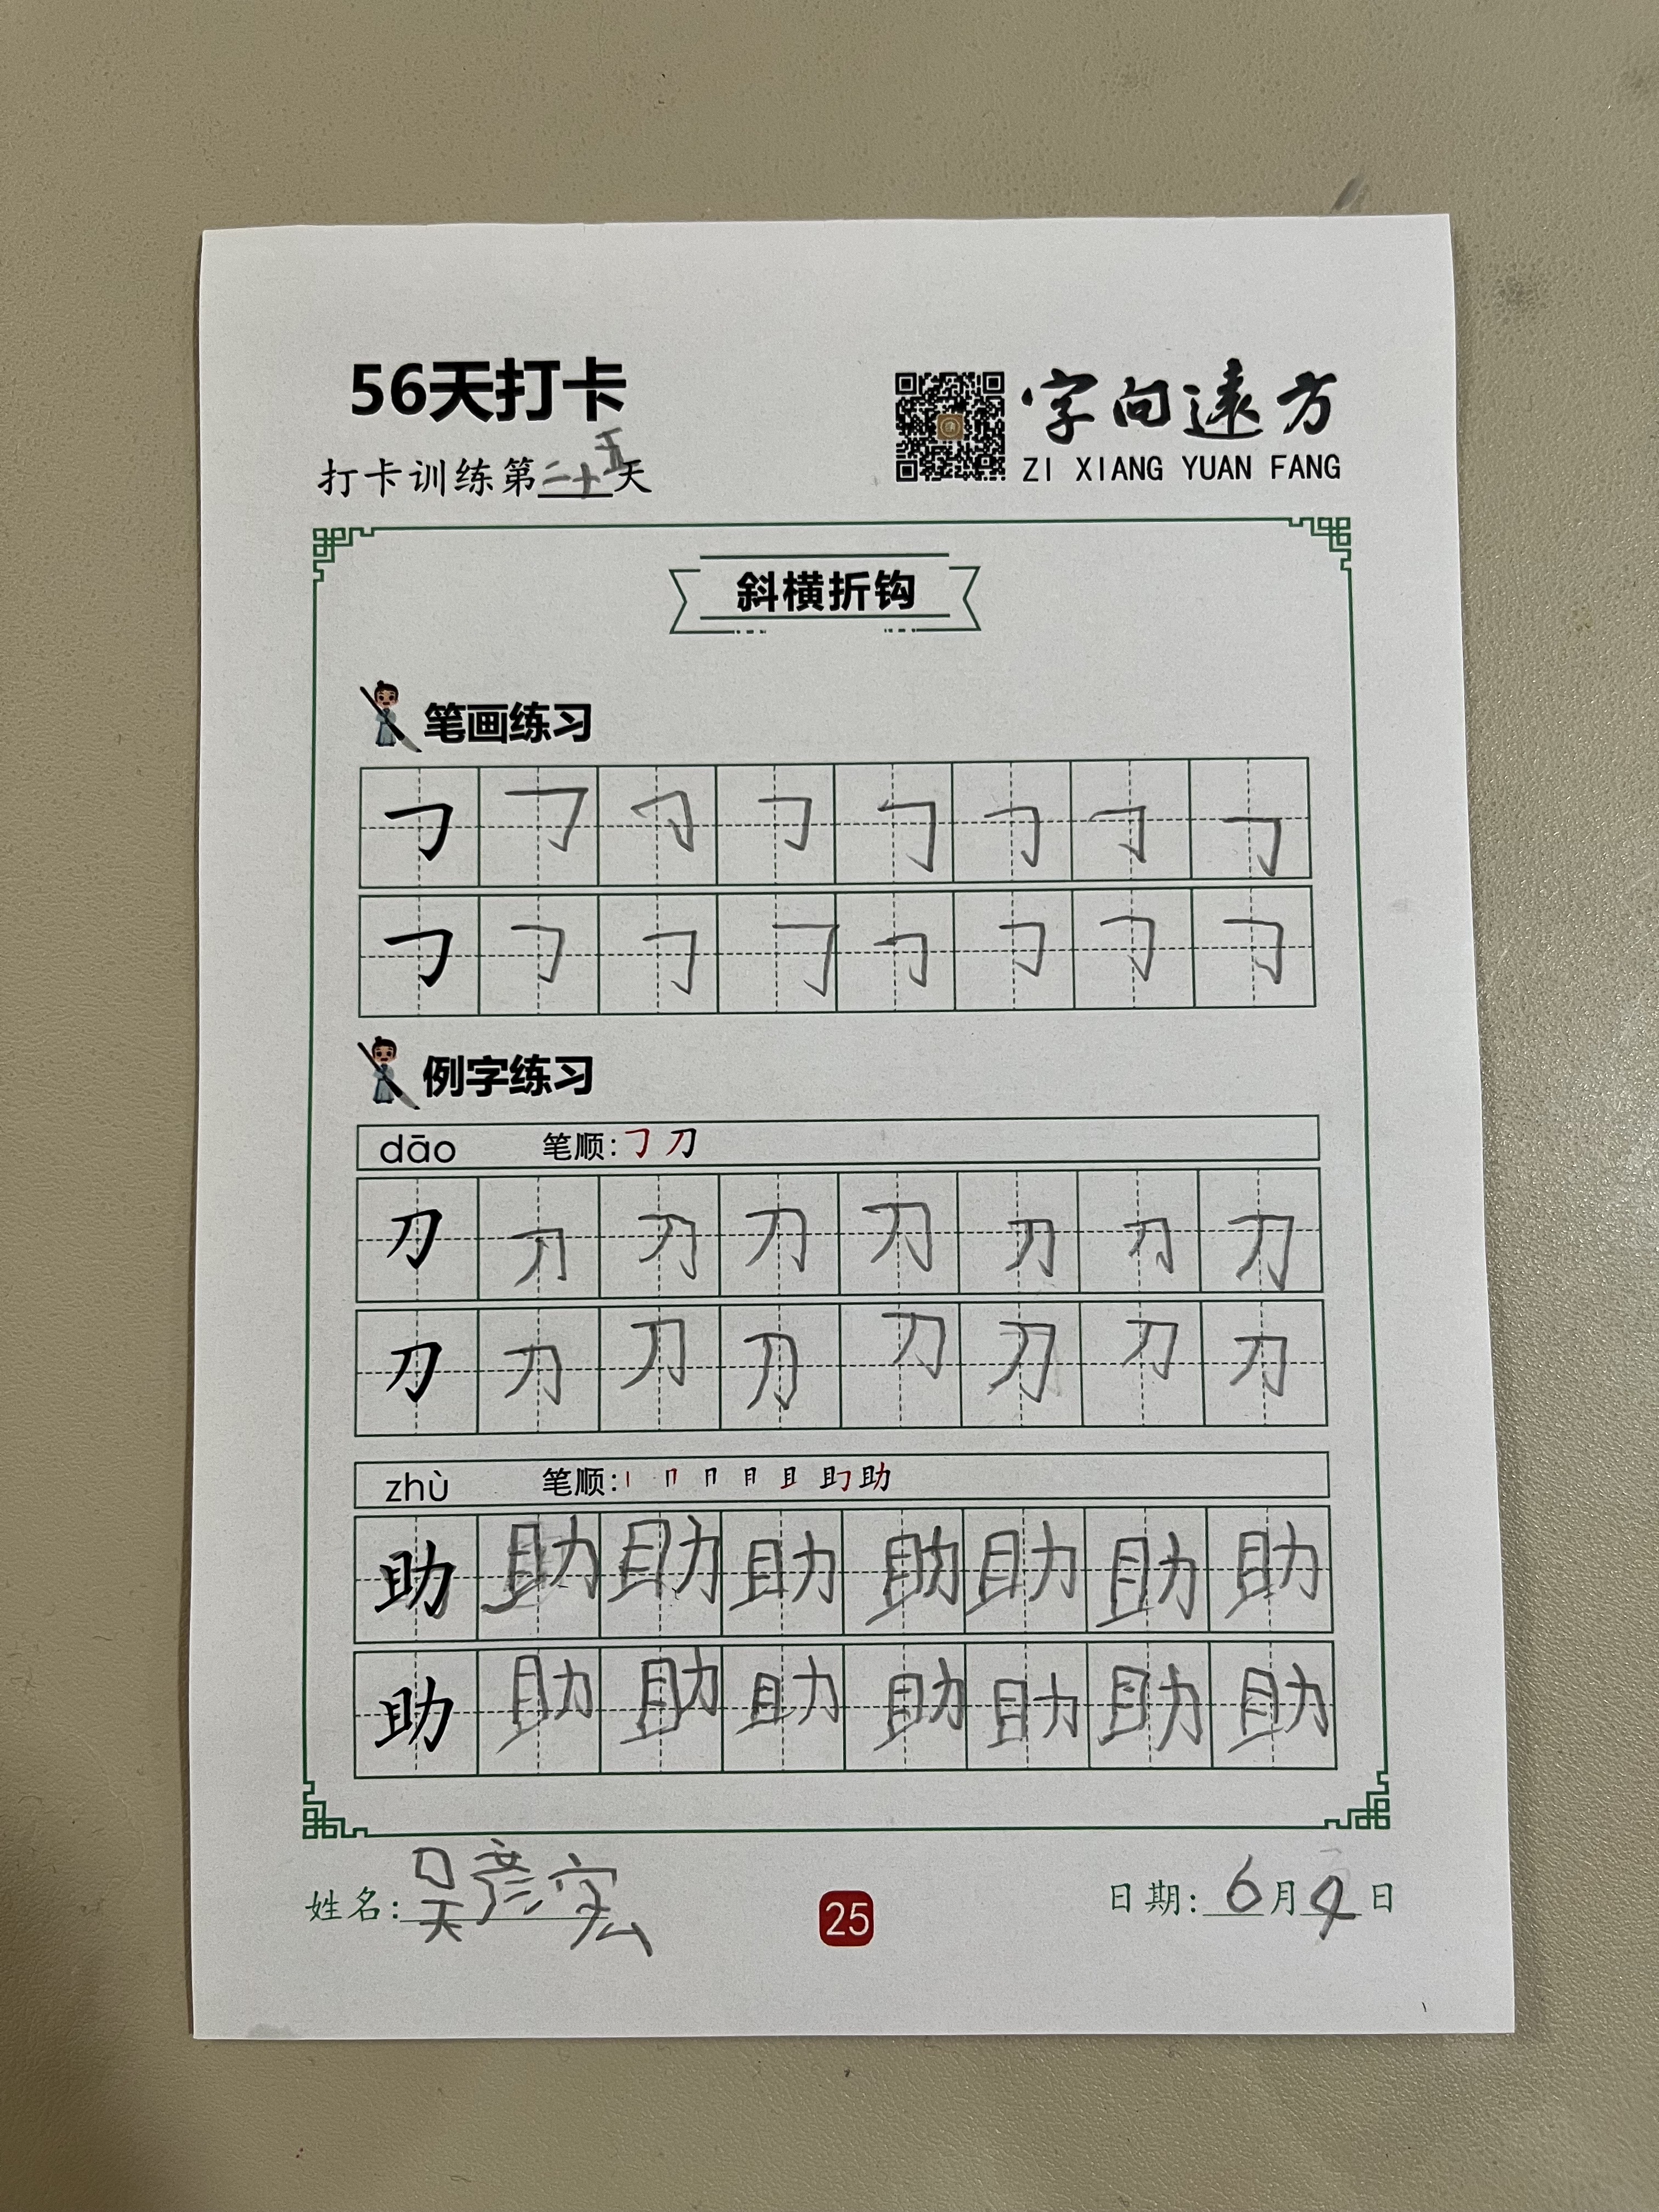 56天打卡
字向遠方
打卡训练第二十五天
ZI XIANG YUAN FANG
斜横折钩
笔画练习
㇆ ㇆ ㇆ ㇆ ㇆ ㇆ ㇆ ㇆
㇆ ㇆ ㇆ ㇆ ㇆ ㇆ ㇆ ㇆
例字练习
dāo 笔顺:㇆ 刀
刀 刀 刀 刀 刀 刀 刀 刀
刀 刀 刀 刀 刀 刀 刀 刀
zhù 笔顺:丨 冂 月 且 助
助 助 助 助 助 助 助 助
助 助 助 助 助 助 助 助
姓名:吴彦宏 25 日期:6月4日